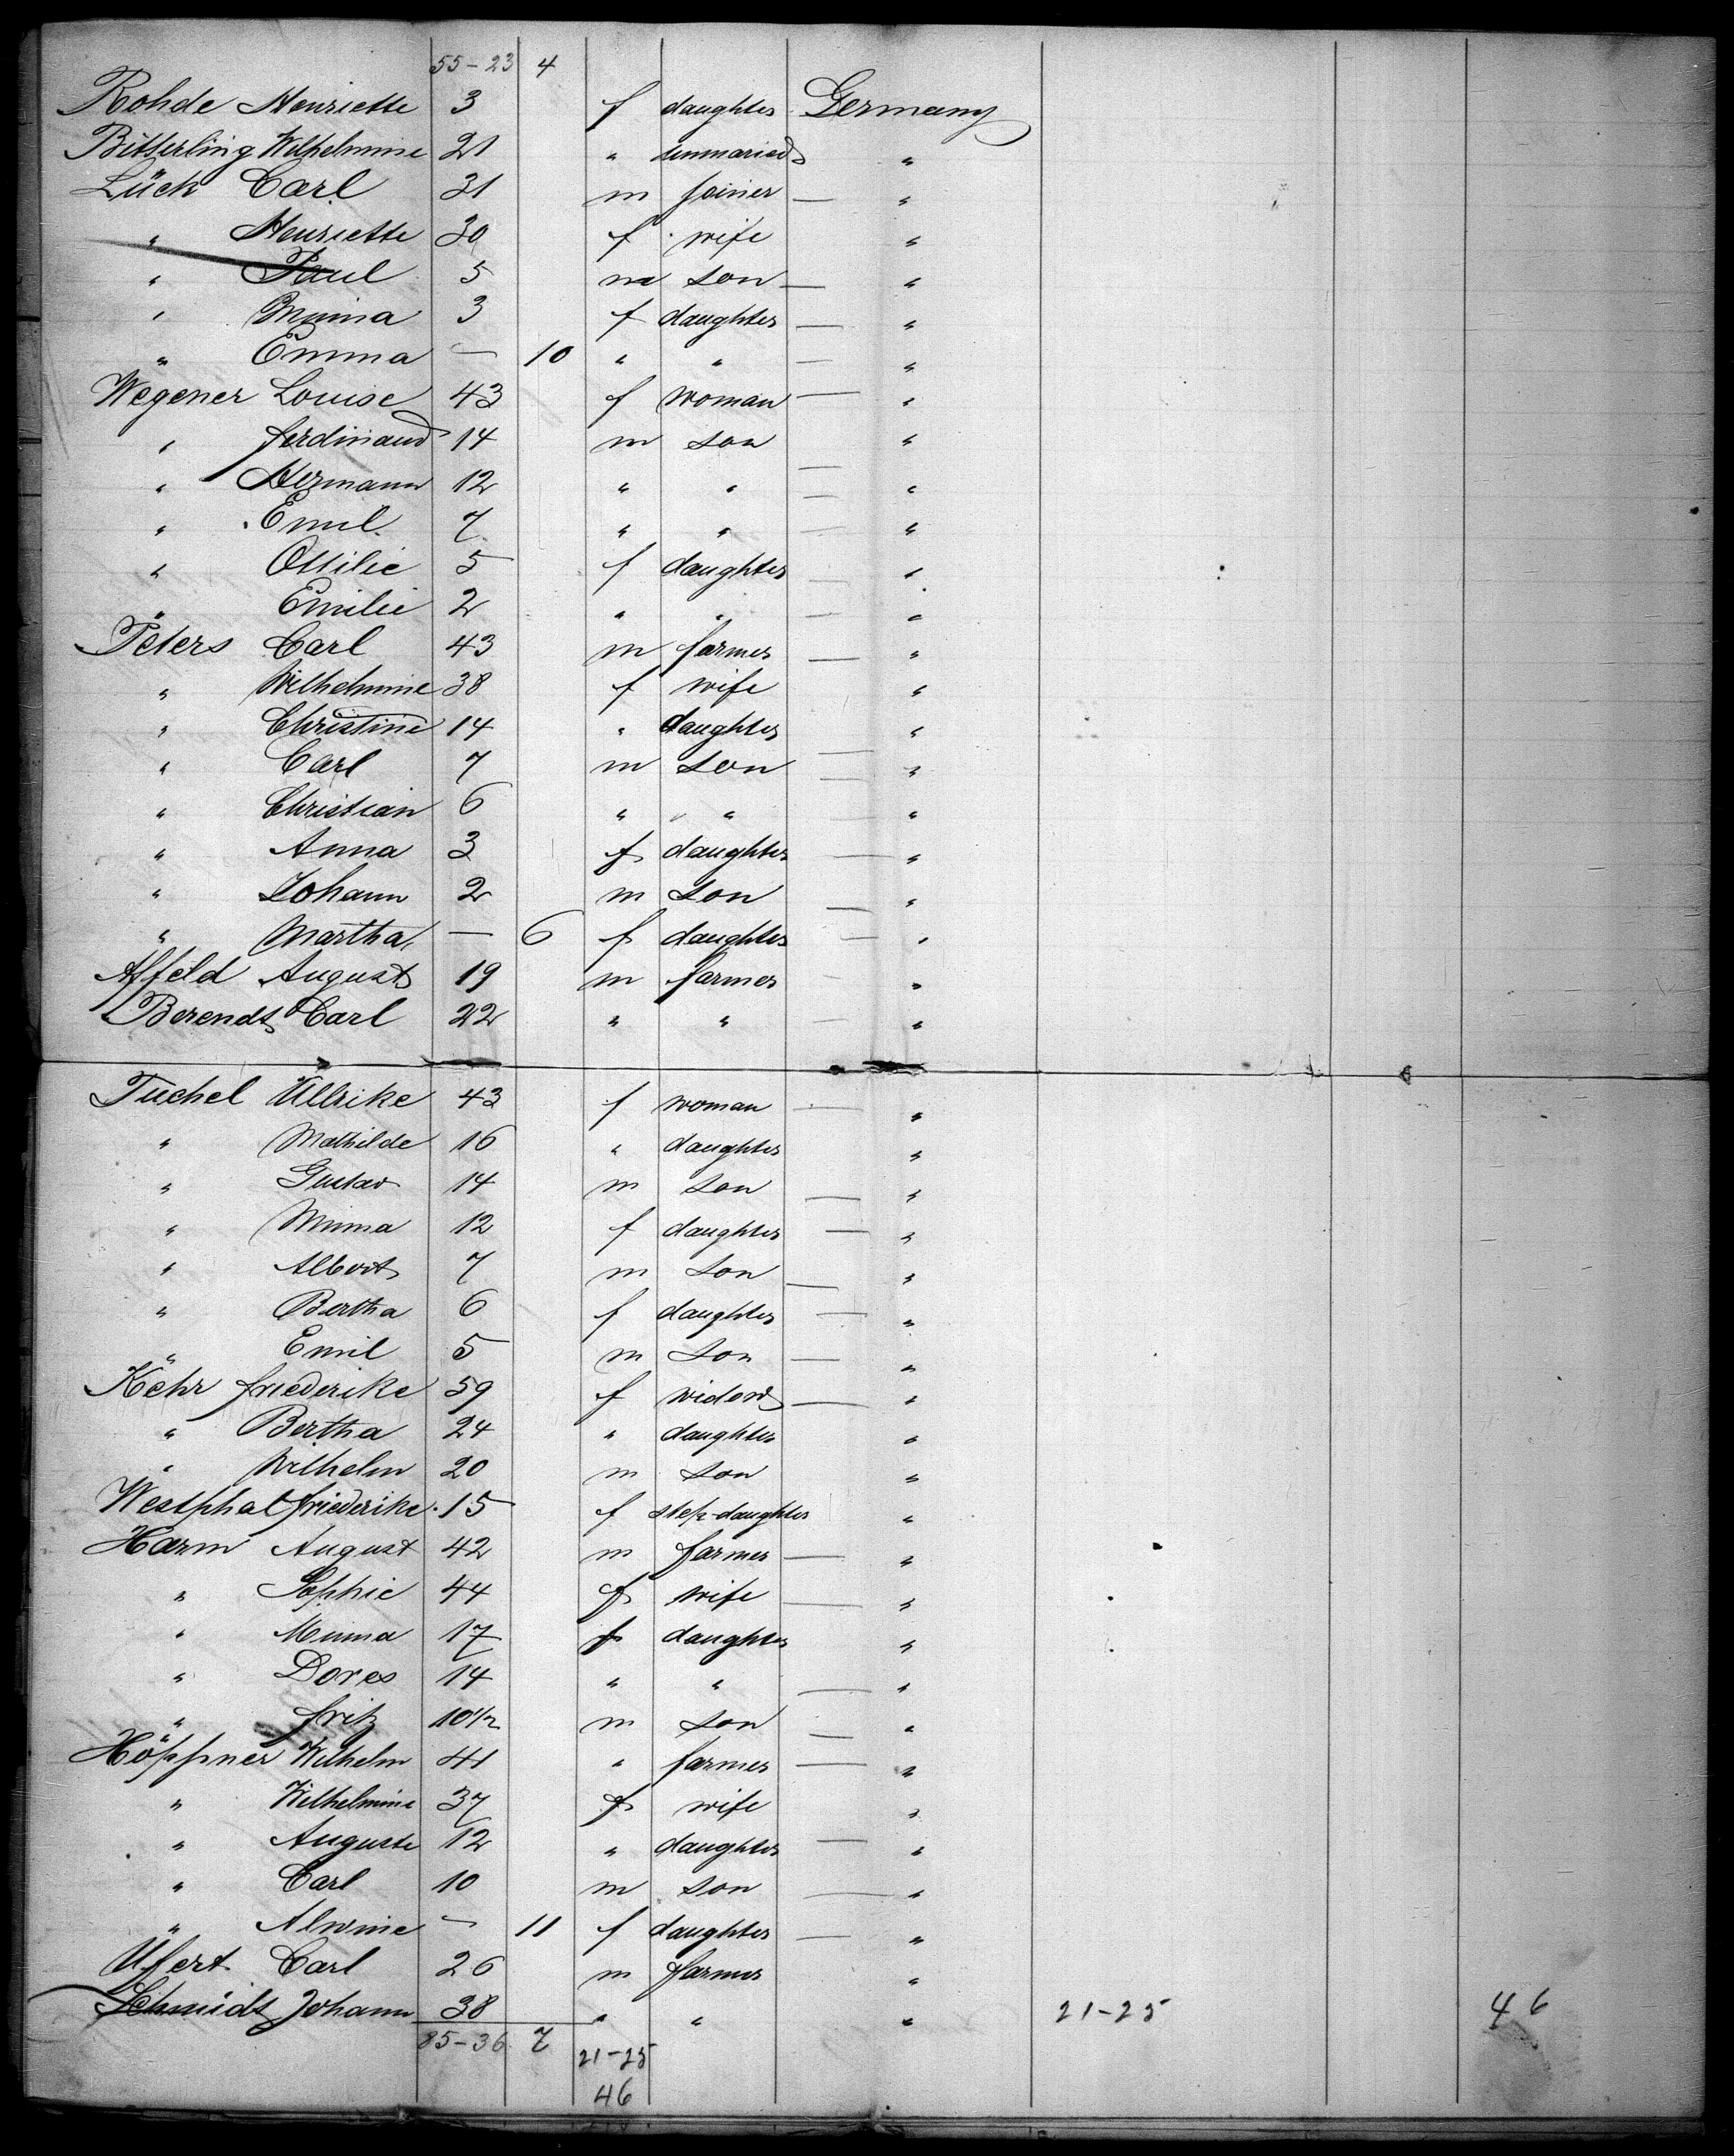 55-23 4
Rohde Henriette 3 f daughter Germany
Bitterling Wilhelmine 21 " unmaried "
Lück Carl 31 m joiner — "
" Henriette 30 f wife "
" Paul 5 m son — "
" Minna 3 f daughter — "
" Emma — 10 " " — "
Wegener Louise 43 f woman — "
" Ferdinand 14 m son "
" Hermann 12 " " — "
" Emil 7 " " — "
" Ottilie 5 f daughter — "
" Emilie 2 " " — "
Peters Carl 43 m farmer — "
" Wilhelmine 38 f wife "
" Christine 14 " daughter "
" Carl 7 m son — "
" Christian 6 " " "
" Anna 3 f daughter — "
" Johann 2 m son — "
" Martha — 6 f daughter — "
Alfeld August 19 m farmer — "
Berendt Carl 22 " " — "
Tuchel Ullrike 43 f woman — "
" Mathilde 16 " daughter "
" Gustav 14 m son — "
" Minna 12 f daughter — "
" Albert 7 m son — "
" Bertha 6 f daughter — "
" Emil 5 m son — "
Kehr Friederike 59 f widow — "
" Bertha 24 " daughter "
" Wilhelm 20 m son "
Westphal Friederike 15 f step-daughter "
Harm August 42 m farmer — "
" Sophie 44 f wife — "
" Minna 17 f daughter "
" Dores 14 " " — "
" Fritz 10 1/2 m son — "
Höppner Wilhelm 41 " farmer — "
" Wilhelmine 37 f wife "
" Auguste 12 " daughter — "
" Carl 10 m son — "
" Alwine — 11 f daughter — "
Ufert Carl 26 m farmer "
Schmidt Johann 38 " " " 21-25 46
85-36 7 21-25
46